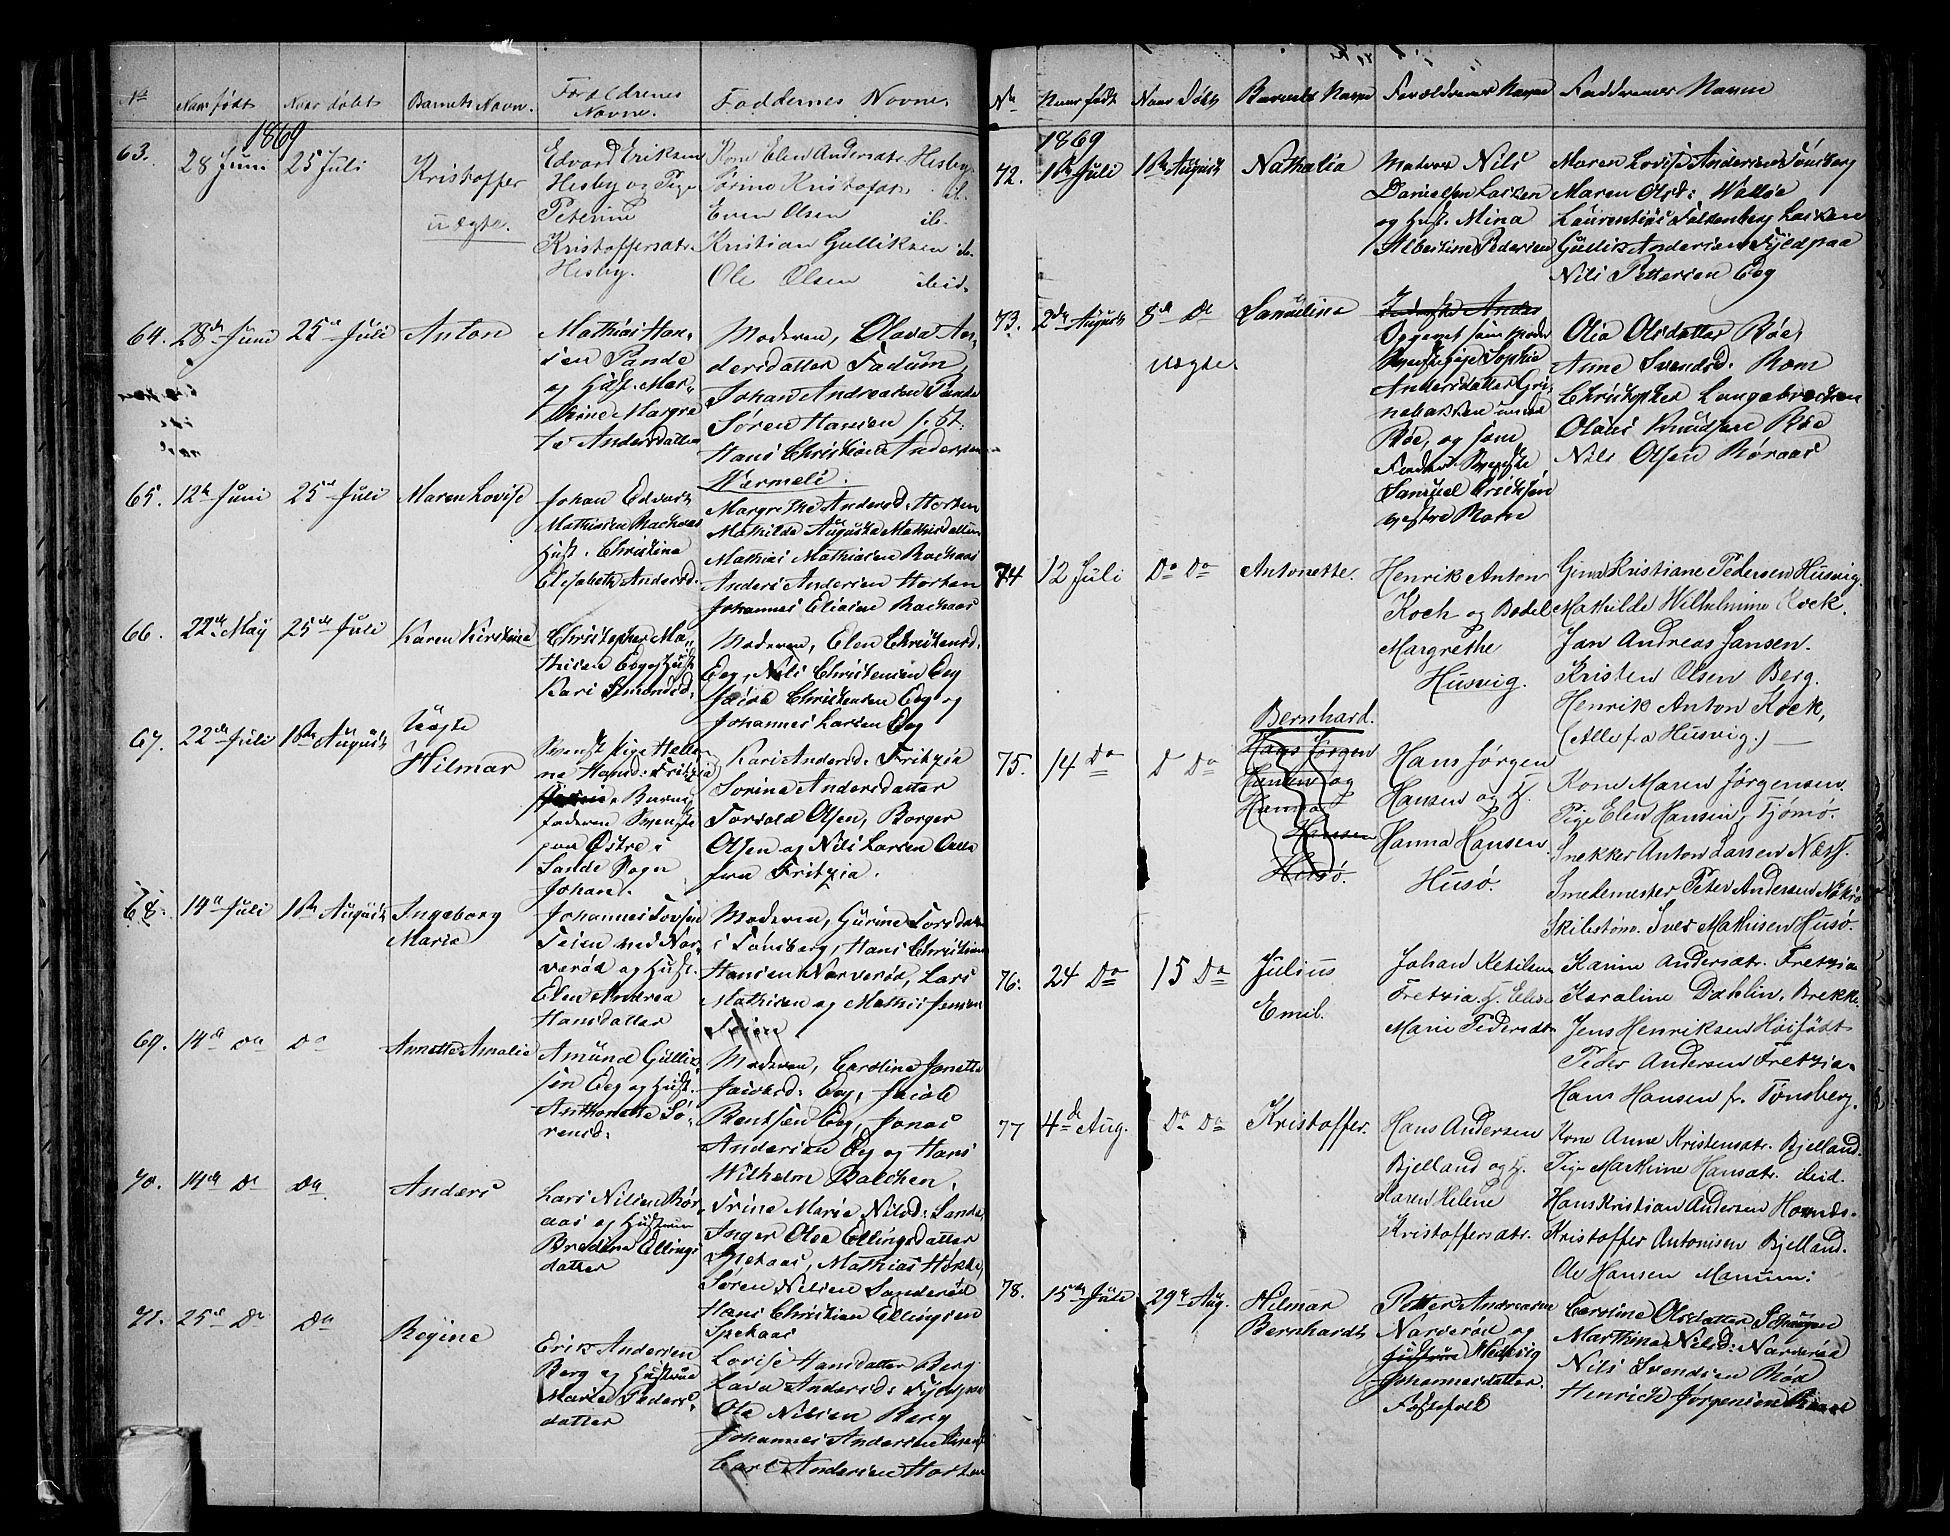 No
Naar født
Naar døbt
Barnets Navn.
Forældrenes Navne.
Faddernes Navne.
1869
63.
28 Juni
25 Juli
Kristoffer
uægte.
Edvard Eriksen
Hesby og Pige
Peterine
Kristoffersatr.
Hesby.
Kone Elen Andersatr. Hesby.
Sørine Kristofatr. ib.
Even Olsen ib.
Kristian Gulliksen ib.
Ole Olsen ibid.
64.
28de Juni
25de Juli
Anton
Mathias Han-
sen Sande
og Hust. Mar-
thine Margre
te Andersdatter
Moderen, Olava An-
dersdatter Fadum,
Johan Andreasen Sande
Søren Hansen
Hans Christian Andersen
Varmeli.
65.
12te Juni
25de Juli
Maren Lovise
Johan Edvart
Mathisen
Hust. Christina
Elisabeth Andersd.
Margrethe Andersd: Horten
Mathilde Auguste Mathisdatter
Mathias Mathiasen
Anders Andersen Horten
Johannes Eliasen
66.
22de May
25de Juli
Karen Kirstine
Christopher Ma-
thisen Eeg og Hust.
Kari Simonsd.
Moderen, Elen Christensd.
Eeg, Nils Christensen Eeg
Jacob Christensen Eeg og
Johannes Larsen Eeg
67.
22de Juli
1ste August
Uægte
Hilmar
Pige Helle
na Hansd: Fritzia
Barne
faderen
paa Østre i
Sande Sogn
Johan.
Kari Andersd: Fritzia
Sorine Andersdatter
Torvald Olsen, Borger
Olsen og Nils Larsen Alle
fra Fritzia.
68.
19de Juli
1ste August
Ingeborg
Maria
Johannes Tovsen
Teien ved Nar-
verød og Hust.
Elen Andrea
Hansdatter
Moderen, Gurine Torsdatter
i Tønsberg, Hans Christian
Hansen Narverød, Lars
Mathisen og Mathis Jensen
69.
14de do
Do
Annette Amalie
Amund Gullik-
sen Eeg og Hust.
Anthonette Sø-
rensd:
Moderen, Caroline Janette
Jacobsd: Eeg, Jacob
Bentsen Eeg, Jonas
Andersen Eeg og Hans
Wilhelm Balchen.
70.
14de Do
Do
Anders
Lars Nilsen Rør
aas og Hustrue
Bredine Ellings
datter
Trine Marie Nilsd: Sande
Inger Olea Ellingsdatter
Spekaas, Mathias
Søren Nilsen Sanderød
Hans Christian Ellingsen
Spekaas
71.
25de Do
Do
Regine
Erik Andersen
Berg og Hustrue
Maria Peders-
datter
Lovise Hansdatter Berg
Lava Andersd:
Ole Nilsen Berg
Johannes Andersen
Carl Andersen Horten
No
Naar født
Naar Døbt
Barnets Navne
Forældrenes Navne
Faddernes Navne
1869
72.
1ste Juli
1ste August
Nathalia
Matros Nils
Danielsen Larsen
og Hust. Mina
Albertine Pedersen
Maren Lovise Andersen Tønsberg
Maren Olsd: Walløe
Laurentius Faldenberg Larsen
Gullik Andersen Fyldpaa
Nils Pettersen Eeg
73.
2de August
8de Do
uægte.
Samuline
Opgivet som moder
Pige Sophie
Andersdatter Gri-
nebakken under
Røe, og som
Fader
Samuel Eriksen
vestre Rom
Olea Olsdatter Røe,
Anne Svendsd. Rom
Christopher Langebrekken
Olaus Knudsen Røe
Nils Olsen Røraas
74
12 Juli
Do Do
Antonette.
Henrik Anton
Koch og Bodel
Margrethe
Husvig.
Gina Kristiane Pedersen Husvig.
Mathilde Wilhelmine Kock.
Jan Andreas Jansen.
Kristen Olsen Berg.
Henrik Anton Kock,
(Alle fra Husvig.)
75.
14 Do
D Do
Bernhard.
Hans Jørgen
Hansen og
Hanna
Hansen
Husø.
Hans Jørgen
Hansen og H.
Hanna Hansen
Husø.
Kone Maren Jørgensen.
Pige Elen Hansen, Tjømø.
Snekker Anton Larsen Næss.
Smedemester Peter Andersen
Skibstøm. Iver Mathisen Husø.
76.
24 Do
15 Do
Julius
Emil.
Johan Ketilsen
Fretzia H. Elise
Marie Pedersdtr
Karine Andersatr. Fretzia
Karaline Dahlin, Brekke.
Jens Henriksen Høifødt
Peder Andersen Fretzia.
Hans Hansen fr. Tønsberg.
77
4de Aug.
Do Do
Kristoffer.
Hans Andersen
Bjelland og H.
Karen Helene
Kristoffersatr.
Kone Anne Kristensatr. Bjelland.
Pige Mathine Hansatr. ibid.
Hans Kristian Andersen
Kristoffer Antonisen Bjelland.
Ole Hansen Manum.
78.
15de Juli
29de Aug.
Hilmar
Bernhardt
Petter Andreasen
Narverød og
Hustrue Hedevig
Johannesdatter.
Caroline Olsdatter
Marthina Nilsd: Narverød
Nils Svendsen Røe
Henrich Jørgensen